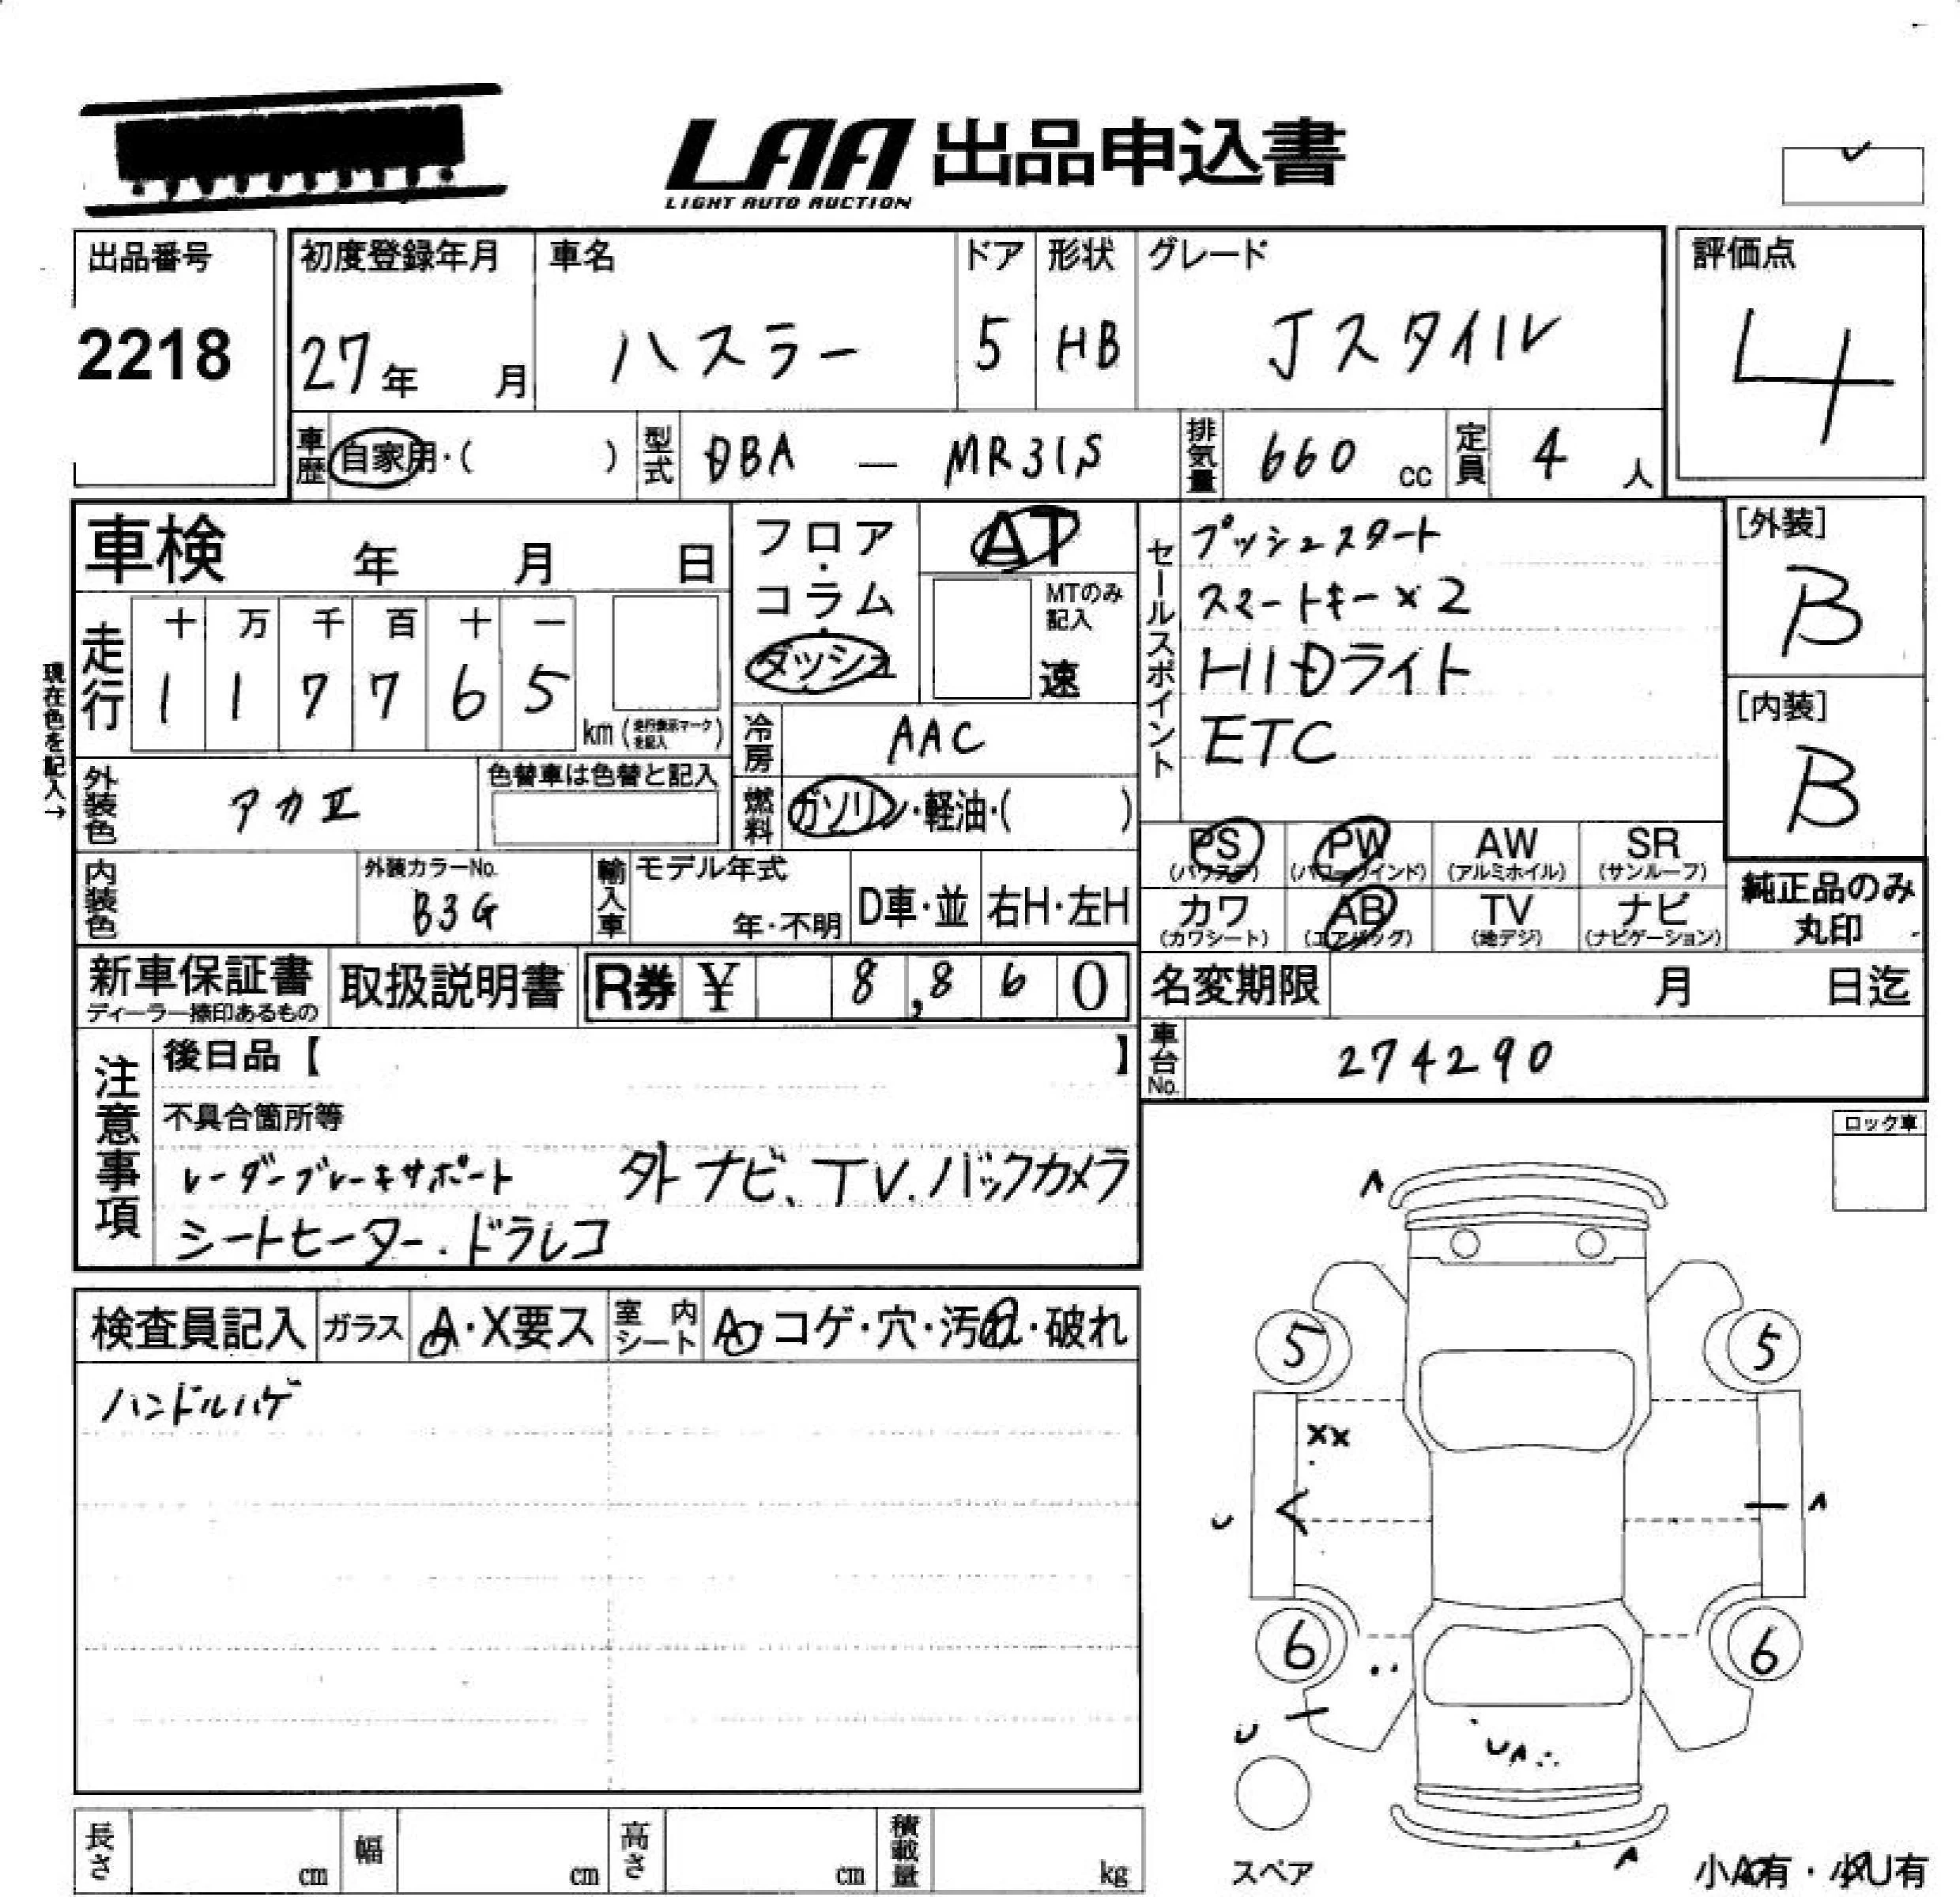 LAA 出品申込書
LIGHT AUTO AUCTION
出品番号
2218
初度登録年月
27年 月
車名
ハスラー
ドア
5
形状
HB
グレード
Jスタイル
評価点
4
車歴 自家用・( )
型式 DBA — MR31S
排気量 660 cc
定員 4 人
車検 年 月 日
走行
十 万 千 百 十 一
1 1 7 7 6 5
km (走行表示マークを記入)
現在色を記入→
フロア・コラム・ダッシュ
AT
MTのみ記入
速
冷房 AAC
燃料 ガソリン・軽油・( )
外装色 アカII
色替車は色替と記入
内装色
外装カラーNo.
B3G
輸入車
モデル年式
年・不明
D車・並
右H・左H
セールスポイント
プッシュスタート
スマートキー×2
HIDライト
ETC
[外装]
B
[内装]
B
PS (パワステ)
PW (パワーウインド)
AW (アルミホイル)
SR (サンルーフ)
カワ (カワシート)
AB (エアバッグ)
TV (地デジ)
ナビ (ナビゲーション)
純正品のみ
丸印
新車保証書
ディーラー捺印あるもの
取扱説明書
R券 ¥ 8,860
名変期限 月 日迄
車台No. 274290
注意事項
後日品【 】
不具合箇所等
レーダーブレーキサポート 外ナビ、TV.バックカメラ
シートヒーター.ドラレコ
ロック車
検査員記入
ガラス A・X要ス
室内シート A・コゲ・穴・汚れ・破れ
ハンドルハゲ
5
5
XX
6
6
U A
スペア
小A有・小U有
長さ cm
幅 cm
高さ cm
積載量 kg